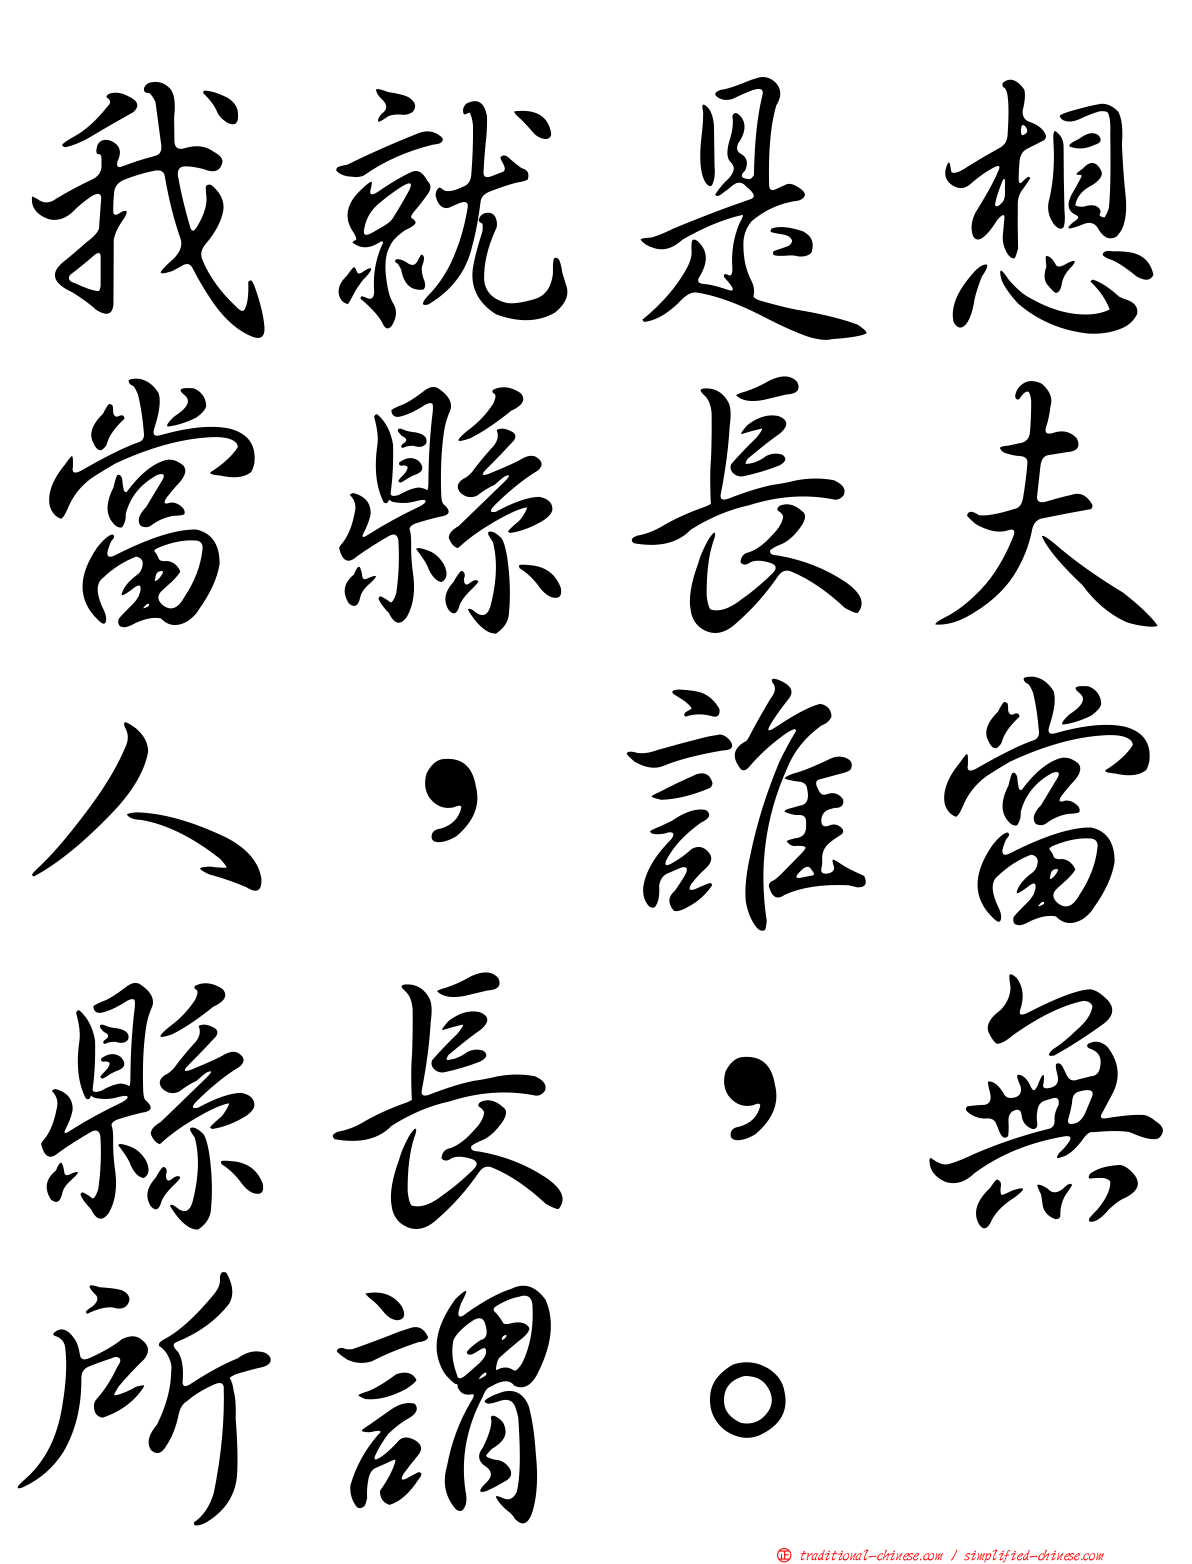 我就是想
當縣長夫
人,誰當
縣長,無
所謂。
正 traditional-chinese.com / simplified-chinese.com